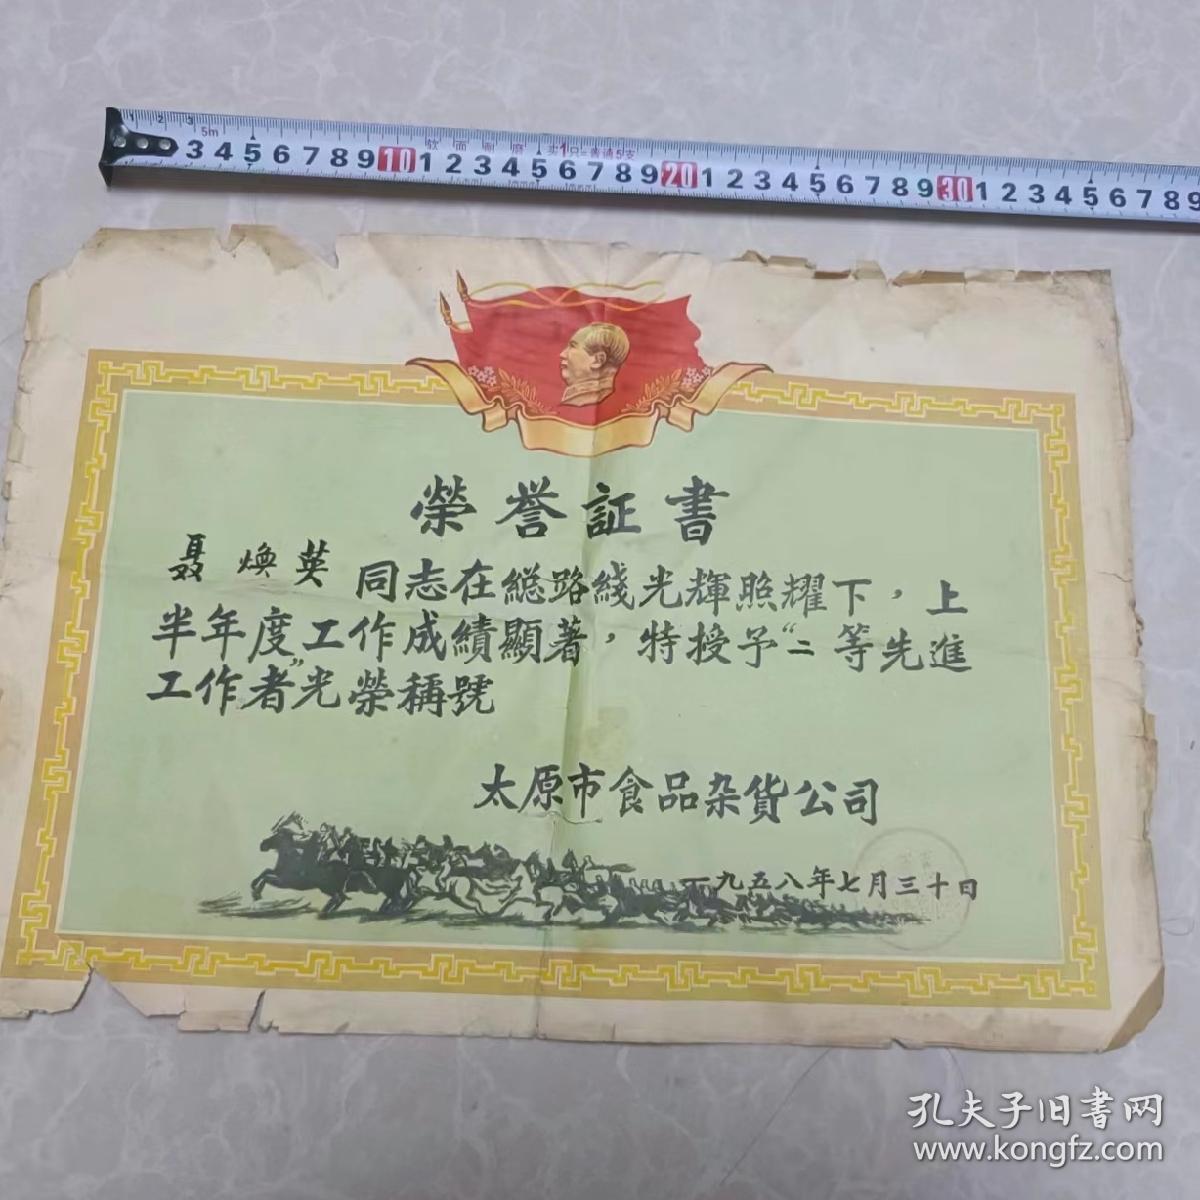 1 2 3
5m
软面耐磨 买1只=普通5支
3 4 5 6 7 8 9 10 1 2 3 4 5 6 7 8 9 20 1 2 3 4 5 6 7 8 9 30 1 2 3 4 5 6 7 8 9
榮誉証書
聂煥英同志在総路綫光輝照耀下，上
半年度工作成績顯著，特授予“二等先進
工作者”光榮稱號
太原市食品杂貨公司
一九五八年七月三十日
孔夫子旧书网
www.kongfz.com